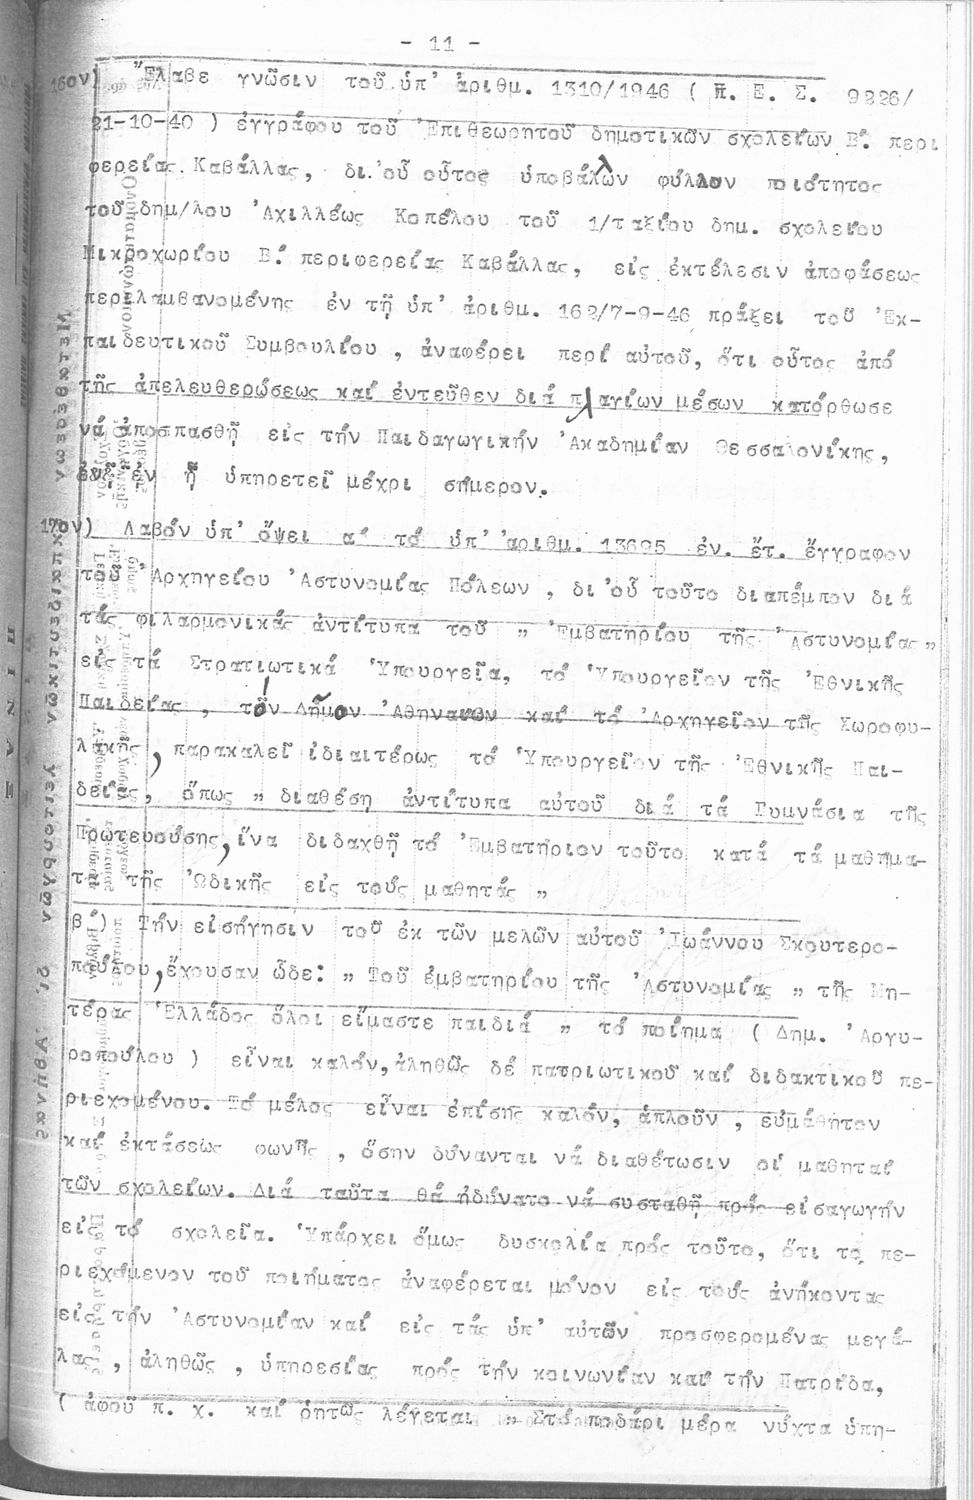 - 11 -
16ον) Ἔλαβε γνῶσιν τοῦ ὑπ' ἀριθμ. 1310/1946 ( Π. Ε. Σ. 9226/
21-10-40 ) ἐγγράφου τοῦ Ἐπιθεωρητοῦ δημοτικῶν σχολείων Β! περι
φερείας Καβάλλας, δι' οὗ οὗτος ὑποβάλλων φύλλον ποιότητος
τοῦ δημ/λου Ἀχιλλέως Κοπέλου τοῦ 1/ταξίου δημ. σχολείου
Μικροχωρίου Β! περιφερείας Καβάλλας, εἰς ἐκτέλεσιν ἀποφάσεως
περιλαμβανομένης ἐν τῇ ὑπ' ἀριθμ. 162/7-9-46 πράξει τοῦ Ἐκ-
παιδευτικοῦ Συμβουλίου , ἀναφέρει περί αὐτοῦ, ὅτι οὗτος ἀπό
τῆς ἀπελευθερώσεως καί ἐντεῦθεν διά πλαγίων μέσων κατόρθωσε
νά ἀποσπασθῇ εἰς τήν Παιδαγωγικήν Ἀκαδημίαν Θεσσαλονίκης,
ἐν ᾗ ὑπηρετεῖ μέχρι σήμερον.
17ον) Λαβόν ὑπ' ὄψει α! τό ὑπ' ἀριθμ. 13695 ἐν. ἔτ. ἔγγραφον
τοῦ Ἀρχηγείου Ἀστυνομίας Πόλεων , δι' οὗ τοῦτο διαπέμπον διά
τάς φιλαρμονικάς ἀντίτυπα τοῦ „ Ἐμβατηρίου τῆς Ἀστυνομίας „
εἰς τά Στρατιωτικά Ὑπουργεῖα, τό Ὑπουργεῖον τῆς Ἐθνικῆς
Παιδείας , τόν Δῆμον Ἀθηναιων καί τό Ἀρχηγεῖον τῆς Χωροφυ-
λακῆς, παρακαλεῖ ἰδιαιτέρως τό Ὑπουργεῖον τῆς Ἐθνικῆς Παι-
δείας, ὅπως „ διαθέσῃ ἀντίτυπα αὐτοῦ διά τά Γυμνάσια τῆς
Πρωτευούσης, ἵνα διδαχθῇ τό Ἐμβατήριον τοῦτο κατά τά μαθήμα-
τα τῆς Ὠδικῆς εἰς τούς μαθητάς „
β!) Τήν εἰσήγησιν τοῦ ἐκ τῶν μελῶν αὐτοῦ Ἰωάννου Σκουτερο-
πούλου, ἔχουσαν ὧδε: „ Τοῦ ἐμβατηρίου τῆς Ἀστυνομίας „ τῆς Μη-
τέρας Ἑλλάδος ὅλοι εἴμαστε παιδιά „ τό ποίημα ( Δημ. Ἀργυ-
ροπούλου ) εἶναι καλόν, ἀληθῶς δέ πατριωτικοῦ καί διδακτικοῦ πε-
ριεχομένου. Τό μέλος εἶναι ἐπίσης καλόν, ἁπλοῦν , εὐμάθητον
καί ἐκτάσεως φωνῆς , ὅσην δύνανται νά διαθέτωσιν οἱ μαθηταί
τῶν σχολείων. Διά ταῦτα θά ἠδύνατο νά συσταθῇ πρός εἰσαγωγήν
εἰς τά σχολεῖα. Ὑπάρχει ὅμως δυσκολία πρός τοῦτο, ὅτι το πε-
ριεχόμενον τοῦ ποιήματος ἀναφέρεται μόνον εἰς τούς ἀνήκοντας
εἰς τήν Ἀστυνομίαν καί εἰς τάς ὑπ' αὐτῶν προσφερομένας μεγά-
λας , ἀληθῶς , ὑπηρεσίας πρός τήν κοινωνίαν καί τήν Πατρίδα,
( ἀφοῦ π. χ. καί ρητῶς λέγεται „ Στό ποδάρι μέρα νύχτα ὑπη-